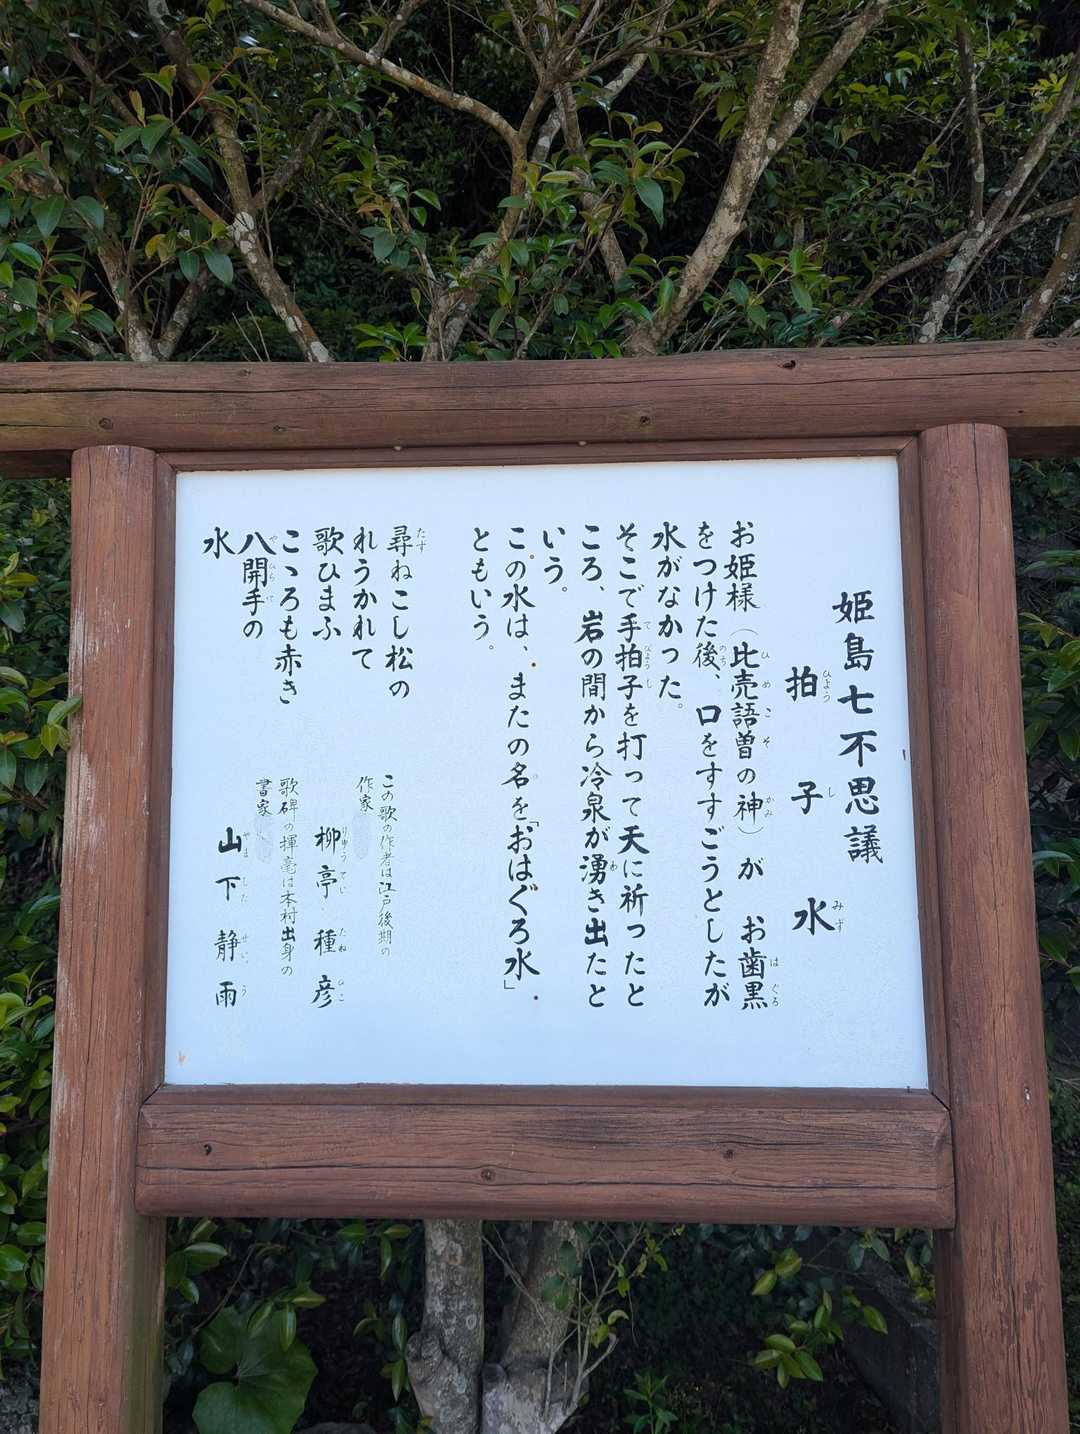 姫島七不思議
拍子水
お姫様（比売語曽の神）が お歯黒
をつけた後、口をすすごうとしたが
水がなかった。
そこで手拍子を打って天に祈ったと
ころ、岩の間から冷泉が湧き出たと
いう。
この水は、またの名を「おはぐろ水」
ともいう。
尋ねこし松の
れうかれて
歌ひまふ
こゝろも赤き
八開手の
水
この歌の作者は江戸後期の
作家
柳亭種彦
歌碑の揮毫は本村出身の
書家
山下静雨